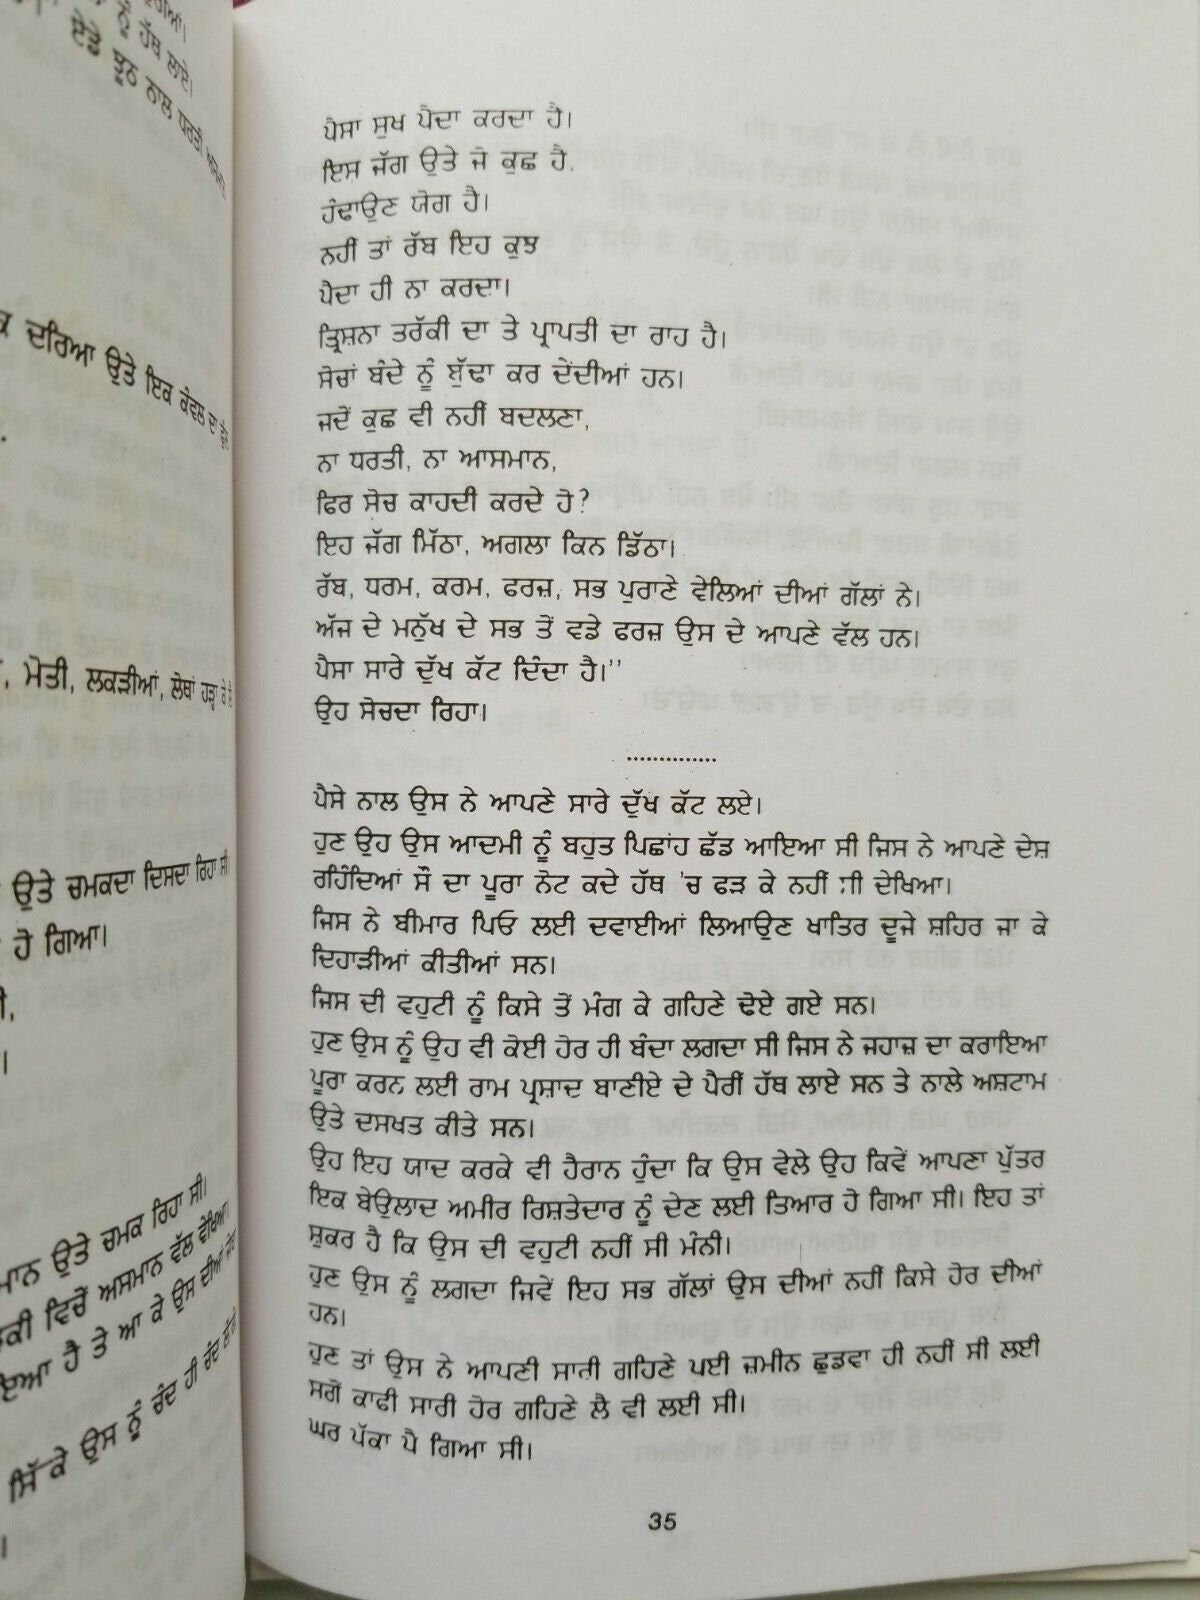 ਨੂੰ ਹੱਥ ਲਾਏ।
ਨਾਲ ਧਰਤੀ
ਦਰਿਆ ਉਤੇ ਇਕ ਕੰਵਲ ਦਾ
ਮੋਤੀ, ਲਕੜੀਆਂ, ਲੋਥਾਂ ਹੜ੍ਹਾ ਕੇ
ਉਤੇ ਚਮਕਦਾ ਦਿਸਦਾ ਰਿਹਾ ਸੀ
ਹੋ ਗਿਆ।
ਉਤੇ ਚਮਕ ਰਿਹਾ ਸੀ।
ਵਿਚੋਂ ਅਸਮਾਨ ਵੱਲ ਵੇਖਿਆ।
ਹੈ ਤੇ ਆ ਕੇ ਉਸ ਦੀਆਂ
ਉਸ ਨੂੰ ਚੰਦ ਹੀ ਚੰਦ
ਪੈਸਾ ਸੁਖ ਪੈਦਾ ਕਰਦਾ ਹੈ।
ਇਸ ਜੱਗ ਉਤੇ ਜੋ ਕੁਛ ਹੈ,
ਹੰਢਾਉਣ ਯੋਗ ਹੈ।
ਨਹੀਂ ਤਾਂ ਰੱਬ ਇਹ ਕੁਝ
ਪੈਦਾ ਹੀ ਨਾ ਕਰਦਾ।
ਤ੍ਰਿਸ਼ਨਾ ਤਰੱਕੀ ਦਾ ਤੇ ਪ੍ਰਾਪਤੀ ਦਾ ਰਾਹ ਹੈ।
ਸੋਚਾਂ ਬੰਦੇ ਨੂੰ ਬੁੱਢਾ ਕਰ ਦੇਂਦੀਆਂ ਹਨ।
ਜਦੋਂ ਕੁਛ ਵੀ ਨਹੀਂ ਬਦਲਣਾ,
ਨਾ ਧਰਤੀ, ਨਾ ਆਸਮਾਨ,
ਫਿਰ ਸੋਚ ਕਾਹਦੀ ਕਰਦੇ ਹੋ?
ਇਹ ਜੱਗ ਮਿੱਠਾ, ਅਗਲਾ ਕਿਨ ਡਿੱਠਾ।
ਰੱਬ, ਧਰਮ, ਕਰਮ, ਫਰਜ਼, ਸਭ ਪੁਰਾਣੇ ਵੇਲਿਆਂ ਦੀਆਂ ਗੱਲਾਂ ਨੇ।
ਅੱਜ ਦੇ ਮਨੁੱਖ ਦੇ ਸਭ ਤੋਂ ਵਡੇ ਫਰਜ਼ ਉਸ ਦੇ ਆਪਣੇ ਵੱਲ ਹਨ।
ਪੈਸਾ ਸਾਰੇ ਦੁੱਖ ਕੱਟ ਦਿੰਦਾ ਹੈ।''
ਉਹ ਸੋਚਦਾ ਰਿਹਾ।
..............
ਪੈਸੇ ਨਾਲ ਉਸ ਨੇ ਆਪਣੇ ਸਾਰੇ ਦੁੱਖ ਕੱਟ ਲਏ।
ਹੁਣ ਉਹ ਉਸ ਆਦਮੀ ਨੂੰ ਬਹੁਤ ਪਿਛਾਂਹ ਛੱਡ ਆਇਆ ਸੀ ਜਿਸ ਨੇ ਆਪਣੇ ਦੇਸ਼
ਰਹਿੰਦਿਆਂ ਸੌ ਦਾ ਪੂਰਾ ਨੋਟ ਕਦੇ ਹੱਥ 'ਚ ਫੜ ਕੇ ਨਹੀਂ ਸੀ ਦੇਖਿਆ।
ਜਿਸ ਨੇ ਬੀਮਾਰ ਪਿਓ ਲਈ ਦਵਾਈਆਂ ਲਿਆਉਣ ਖਾਤਿਰ ਦੂਜੇ ਸ਼ਹਿਰ ਜਾ ਕੇ
ਦਿਹਾੜੀਆਂ ਕੀਤੀਆਂ ਸਨ।
ਜਿਸ ਦੀ ਵਹੁਟੀ ਨੂੰ ਕਿਸੇ ਤੋਂ ਮੰਗ ਕੇ ਗਹਿਣੇ ਢੋਏ ਗਏ ਸਨ।
ਹੁਣ ਉਸ ਨੂੰ ਉਹ ਵੀ ਕੋਈ ਹੋਰ ਹੀ ਬੰਦਾ ਲਗਦਾ ਸੀ ਜਿਸ ਨੇ ਜਹਾਜ਼ ਦਾ ਕਰਾਇਆ
ਪੂਰਾ ਕਰਨ ਲਈ ਰਾਮ ਪ੍ਰਸ਼ਾਦ ਬਾਣੀਏ ਦੇ ਪੈਰੀਂ ਹੱਥ ਲਾਏ ਸਨ ਤੇ ਨਾਲੇ ਅਸ਼ਟਾਮ
ਉਤੇ ਦਸਖਤ ਕੀਤੇ ਸਨ।
ਉਹ ਇਹ ਯਾਦ ਕਰਕੇ ਵੀ ਹੈਰਾਨ ਹੁੰਦਾ ਕਿ ਉਸ ਵੇਲੇ ਉਹ ਕਿਵੇਂ ਆਪਣਾ ਪੁੱਤਰ
ਇਕ ਬੇਉਲਾਦ ਅਮੀਰ ਰਿਸ਼ਤੇਦਾਰ ਨੂੰ ਦੇਣ ਲਈ ਤਿਆਰ ਹੋ ਗਿਆ ਸੀ। ਇਹ ਤਾਂ
ਸ਼ੁਕਰ ਹੈ ਕਿ ਉਸ ਦੀ ਵਹੁਟੀ ਨਹੀਂ ਸੀ ਮੰਨੀ।
ਹੁਣ ਉਸ ਨੂੰ ਲਗਦਾ ਜਿਵੇਂ ਇਹ ਸਭ ਗੱਲਾਂ ਉਸ ਦੀਆਂ ਨਹੀਂ ਕਿਸੇ ਹੋਰ ਦੀਆਂ
ਹਨ।
ਹੁਣ ਤਾਂ ਉਸ ਨੇ ਆਪਣੀ ਸਾਰੀ ਗਹਿਣੇ ਪਈ ਜ਼ਮੀਨ ਛੁਡਵਾ ਹੀ ਨਹੀਂ ਸੀ ਲਈ
ਸਗੋਂ ਕਾਫੀ ਸਾਰੀ ਹੋਰ ਗਹਿਣੇ ਲੈ ਵੀ ਲਈ ਸੀ।
ਘਰ ਪੱਕਾ ਪੈ ਗਿਆ ਸੀ।
35